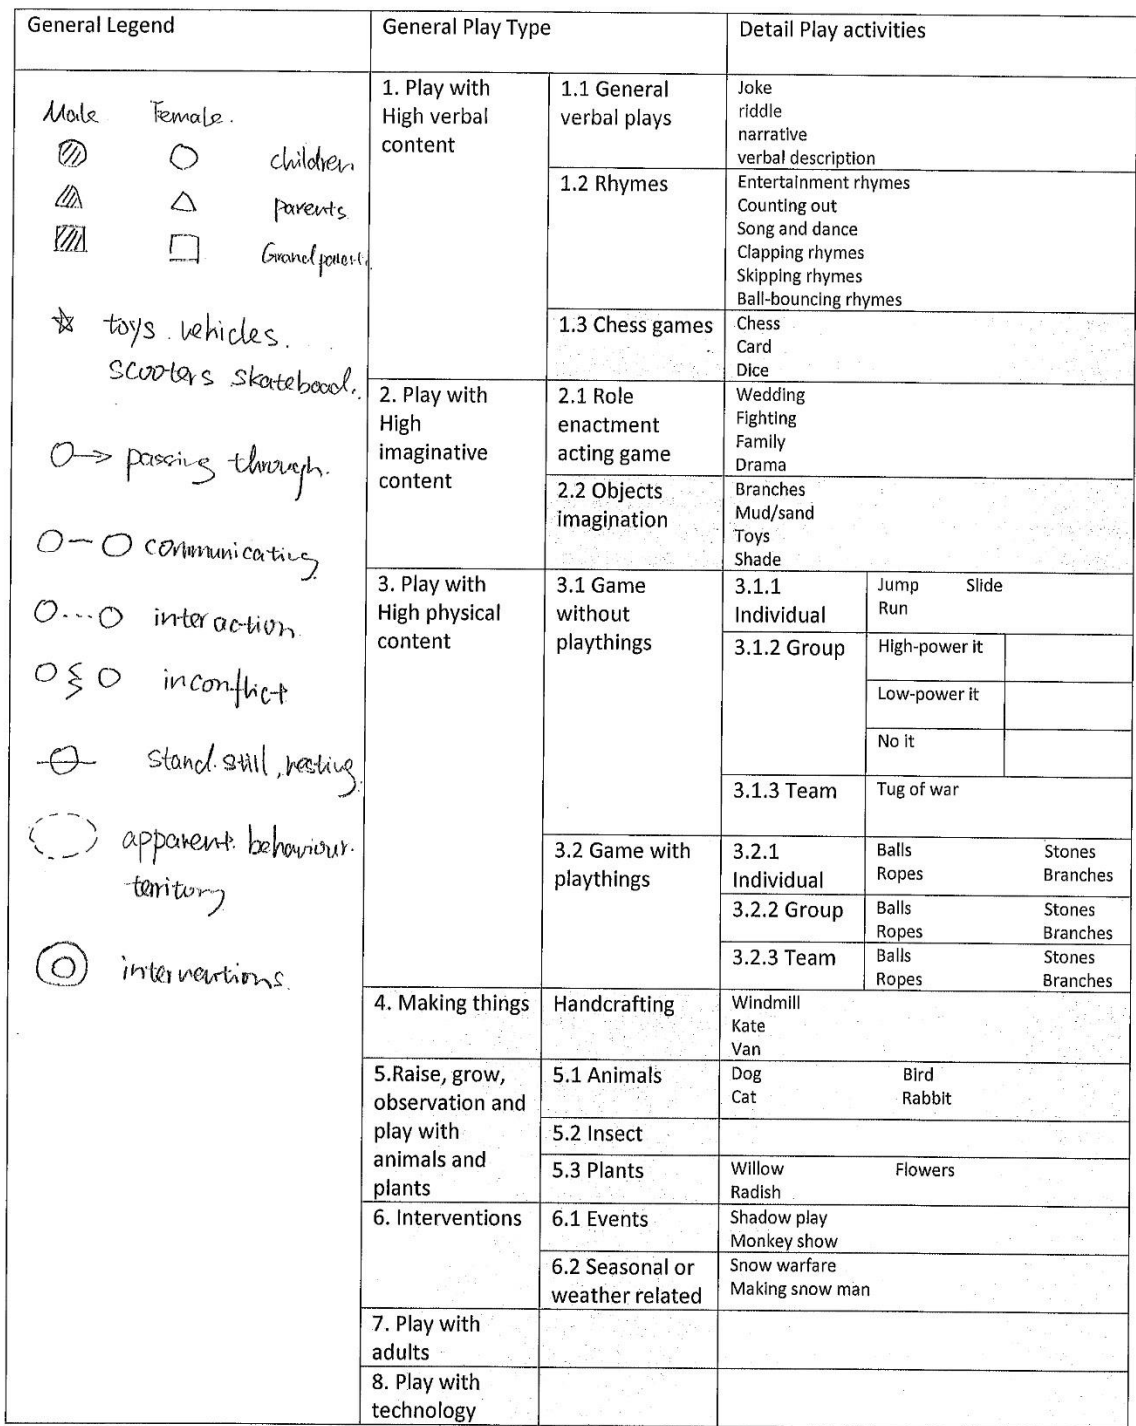 General Legend
General Play Type
Detail Play activities
Male Female.
children
parents
Grandparent.
toys. vehicles.
scooters skateboad.
passing through.
communicating
interaction
inconflict
stand. still, resting.
apparent. behaviour.
territory
interventions.
1. Play with
High verbal
content
1.1 General
verbal plays
Joke
riddle
narrative
verbal description
1.2 Rhymes
Entertainment rhymes
Counting out
Song and dance
Clapping rhymes
Skipping rhymes
Ball-bouncing rhymes
1.3 Chess games
Chess
Card
Dice
2. Play with
High
imaginative
content
2.1 Role
enactment
acting game
Wedding
Fighting
Family
Drama
2.2 Objects
imagination
Branches
Mud/sand
Toys
Shade
3. Play with
High physical
content
3.1 Game
without
playthings
3.1.1
Individual
Jump Slide
Run
3.1.2 Group
High-power it
Low-power it
No it
3.1.3 Team
Tug of war
3.2 Game with
playthings
3.2.1
Individual
Balls Stones
Ropes Branches
3.2.2 Group
Balls Stones
Ropes Branches
3.2.3 Team
Balls Stones
Ropes Branches
4. Making things
Handcrafting
Windmill
Kate
Van
5.Raise, grow,
observation and
play with
animals and
plants
5.1 Animals
Dog Bird
Cat Rabbit
5.2 Insect
5.3 Plants
Willow Flowers
Radish
6. Interventions
6.1 Events
Shadow play
Monkey show
6.2 Seasonal or
weather related
Snow warfare
Making snow man
7. Play with
adults
8. Play with
technology